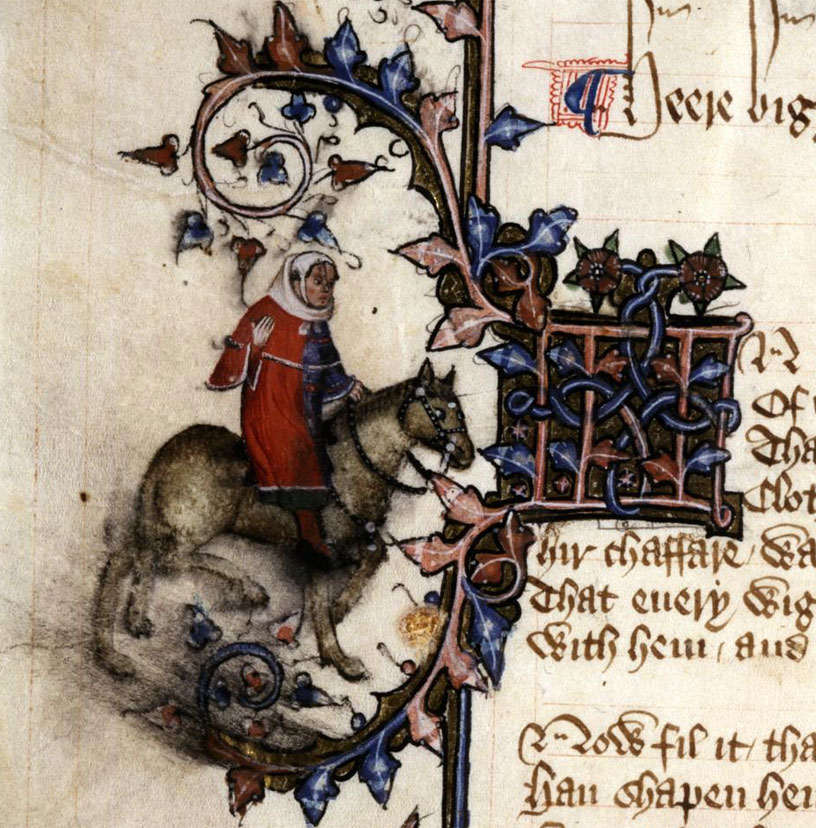 ¶ Heere big
IN
Of
Tha
Cloth
hir chaffare / wa
That euery wig
With hem / and
Now fil it / tha
han shapen hem